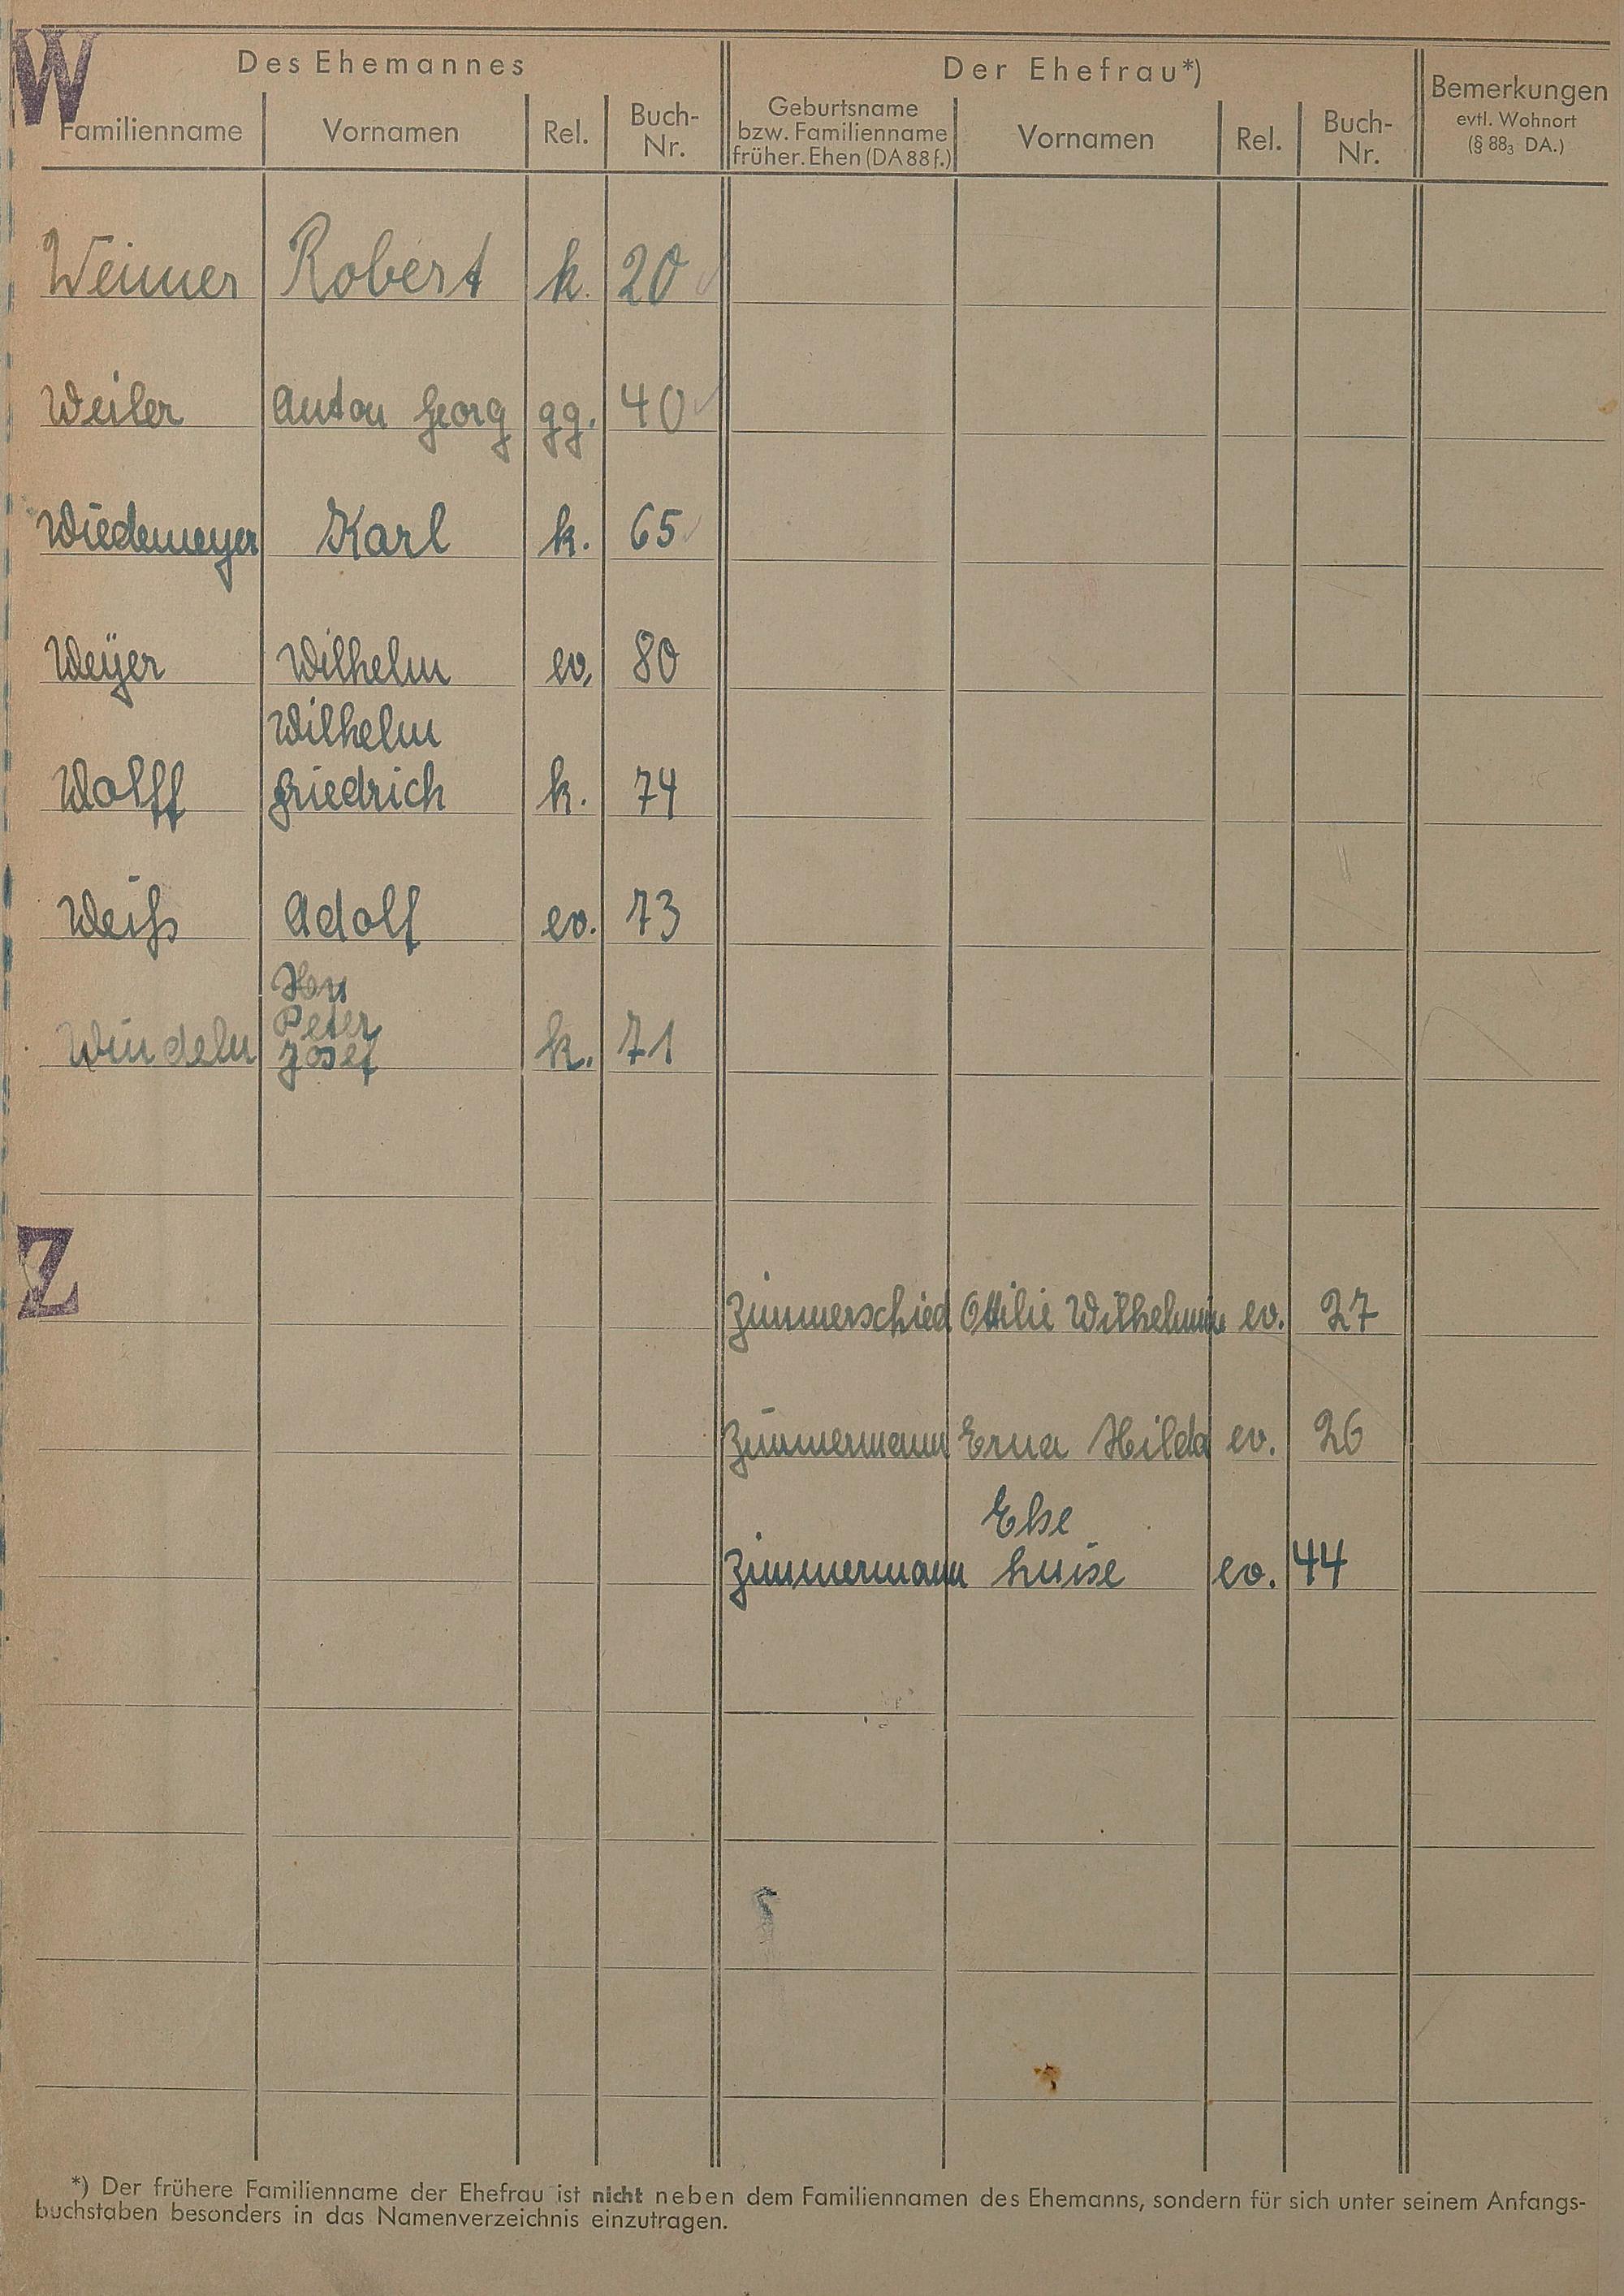 W
Des Ehemannes Der Ehefrau*) Bemerkungen
evtl. Wohnort
(§ 88₃ DA.)
Familienname Vornamen Rel. Buch-Nr. Geburtsname bzw. Familienname früher. Ehen (DA 88 f.) Vornamen Rel. Buch-Nr.
Weimer Robert k. 20
Weiler Anton Georg gg. 40
Wiedemeyer Karl k. 65
Weÿer Wilhelm ev. 80
Wilhelm
Wolff Friedrich k. 74
Weiß Adolf ev. 73
Peter
Windeln Josef k. 71
Z
Zimmerschied Ottilie Wilhelmine ev. 27
Zimmermann Erna Hilda ev. 26
Else
Zimmermann Luise ev. 44
*) Der frühere Familienname der Ehefrau ist nicht neben dem Familiennamen des Ehemanns, sondern für sich unter seinem Anfangs-
buchstaben besonders in das Namenverzeichnis einzutragen.